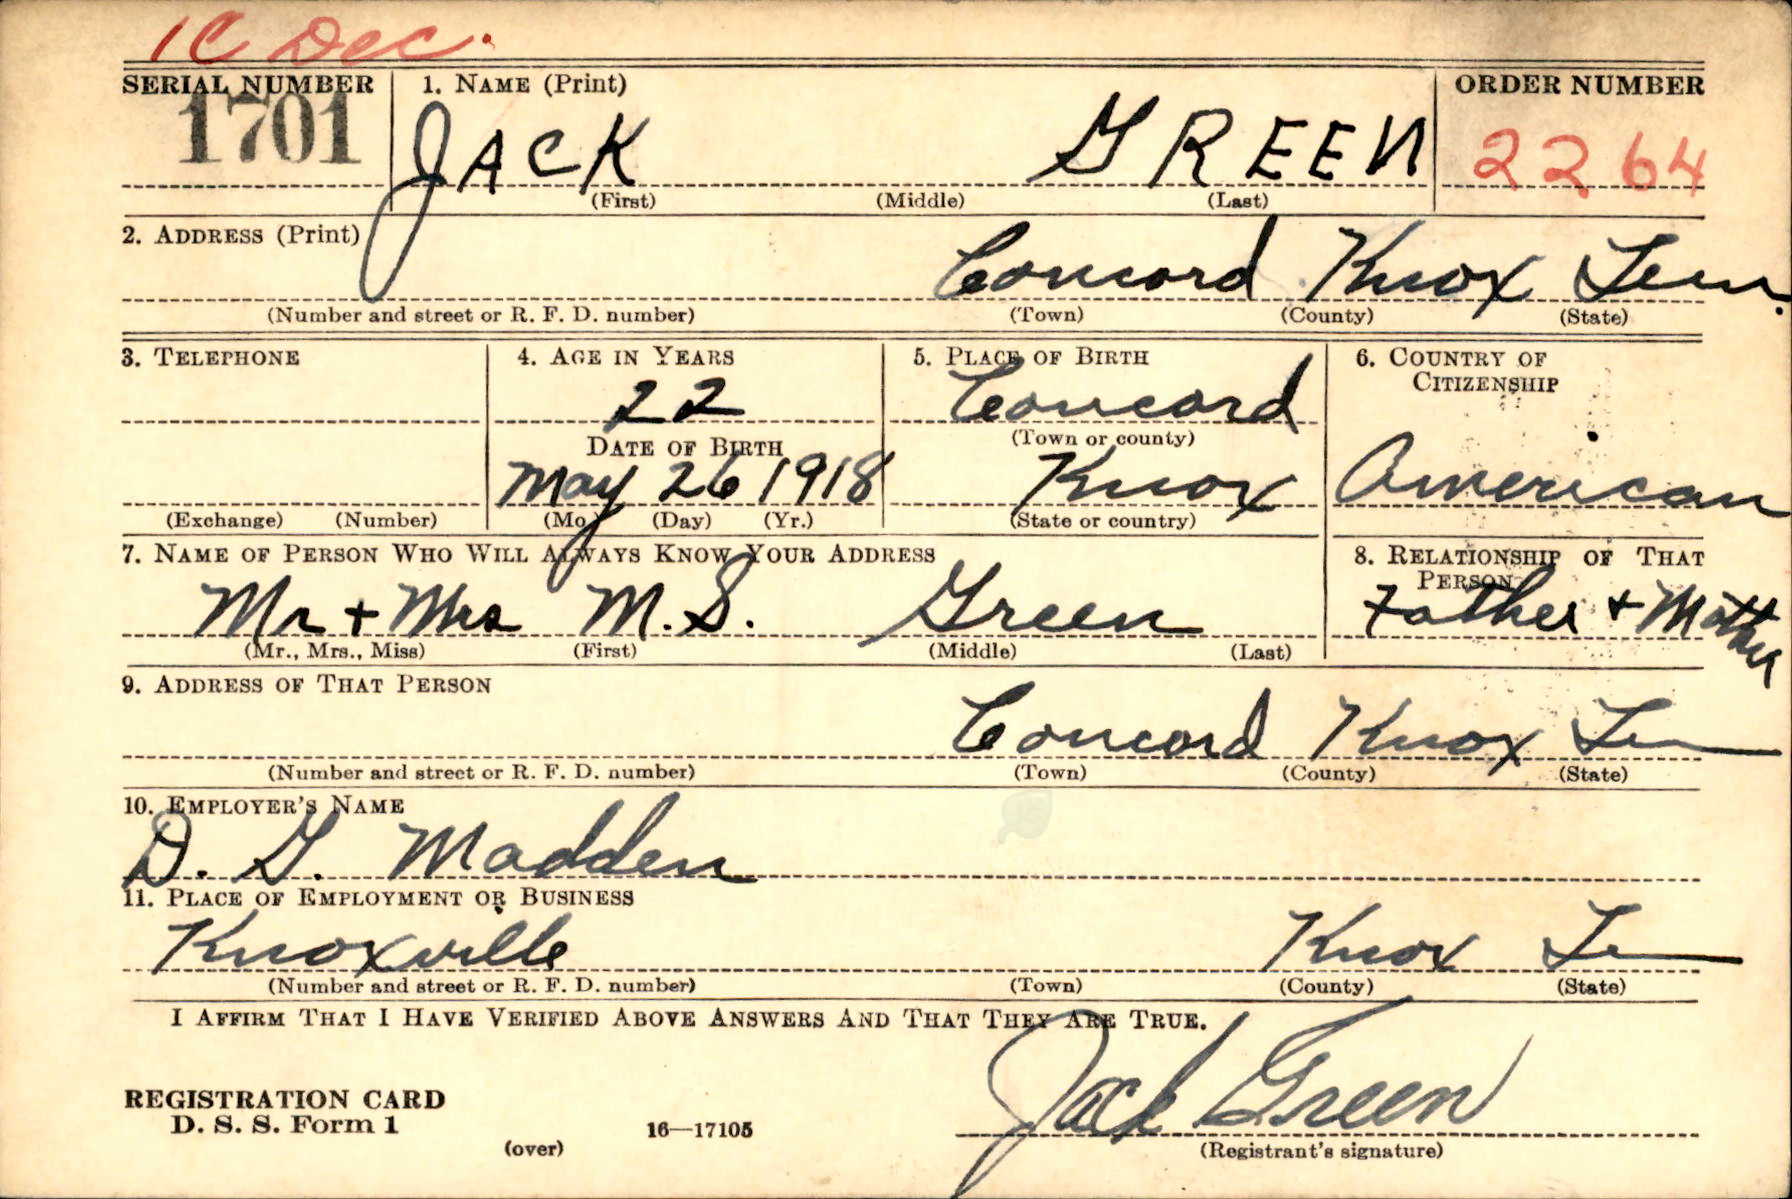 1C Dec.
SERIAL NUMBER 1. NAME (Print) ORDER NUMBER
1701 JACK GREEN 2264
(First) (Middle) (Last)
2. ADDRESS (Print)
Concord Knox Tenn.
(Number and street or R. F. D. number) (Town) (County) (State)
3. TELEPHONE 4. AGE IN YEARS 5. PLACE OF BIRTH 6. COUNTRY OF
CITIZENSHIP
22 Concord
DATE OF BIRTH (Town or county)
May 26 1918 Knox American
(Exchange) (Number) (Mo.) (Day) (Yr.) (State or country)
7. NAME OF PERSON WHO WILL ALWAYS KNOW YOUR ADDRESS 8. RELATIONSHIP OF THAT
PERSON
Mr + Mrs M. S. Green Father + Mother
(Mr., Mrs., Miss) (First) (Middle) (Last)
9. ADDRESS OF THAT PERSON
Concord Knox Te
(Number and street or R. F. D. number) (Town) (County) (State)
10. EMPLOYER'S NAME
D. G. Madden
11. PLACE OF EMPLOYMENT OR BUSINESS
Knoxville Knox Te
(Number and street or R. F. D. number) (Town) (County) (State)
I AFFIRM THAT I HAVE VERIFIED ABOVE ANSWERS AND THAT THEY ARE TRUE.
Jack Green
REGISTRATION CARD
D. S. S. Form 1
(over) 16—17105 (Registrant's signature)